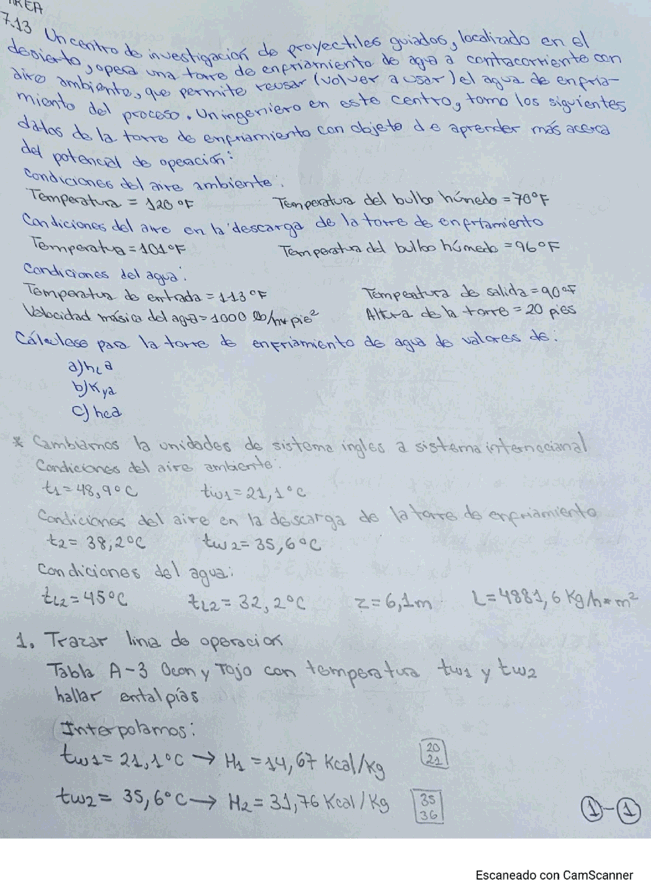 TAREA
7.13 Un centro de investigación de proyectiles guiados, localizado en el
desierto, opera una torre de enfriamiento de agua a contracorriente con
aire ambiente, que permite reusar (volver a usar) el agua de enfria-
miento del proceso. Un ingeniero en este centro, tomo los siguientes
datos de la torre de enfriamiento con objeto de aprender más acerca
del potencial de operación:
Condiciones del aire ambiente.
Temperatura = 120 °F Temperatura del bulbo húmedo = 70°F
Condiciones del aire en la descarga de la torre de enfriamiento
Temperatura = 101°F Temperatura del bulbo húmedo = 96°F
Condiciones del agua:
Temperatura de entrada = 113°F Temperatura de salida = 90°F
Velocidad másica del agua = 1000 lb/hr*pie² Altura de la torre = 20 pies
Cálculese para la torre de enfriamiento de agua de valores de:
a) hLa
b) Kya
c) hca
* Cambiamos la unidades de sistema ingles a sistema internacional
Condiciones del aire ambiente.
t1 = 48,9°C tw1 = 21,1°C
Condiciones del aire en la descarga de la torre de enfriamiento
t2 = 38,2°C tw2 = 35,6°C
Condiciones del agua:
tL2 = 45°C tL2 = 32,2°C z = 6,1m L = 4881,6 Kg/h*m²
1. Trazar lina de operacion
Tabla A-3 Ocon y Tojo con temperatura tw1 y tw2
hallar entalpías
Interpolamos:
tw1 = 21,1°C → H1 = 14,67 Kcal/Kg 20 21
tw2 = 35,6°C → H2 = 31,76 Kcal/Kg 35 36
1-1
Escaneado con CamScanner